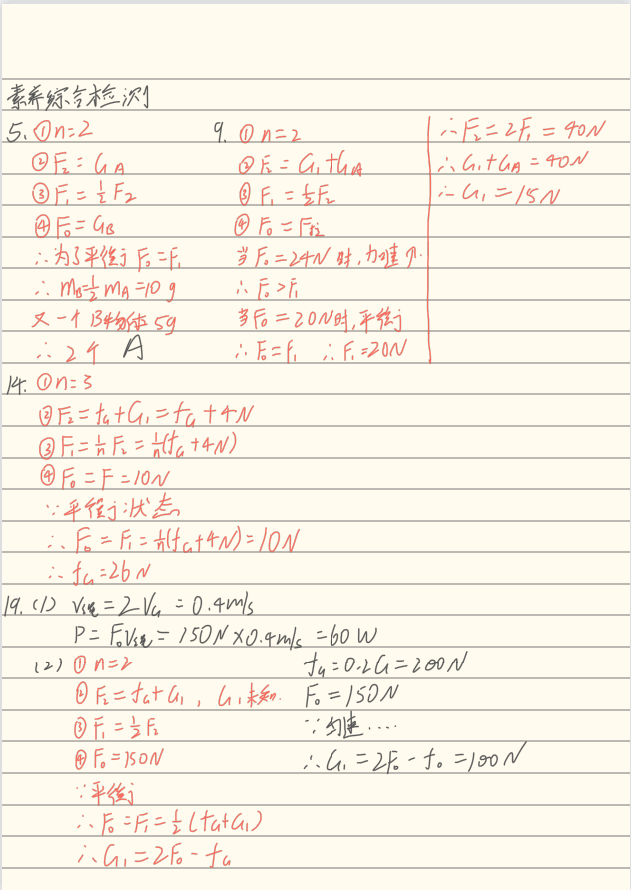 素养综合检测
5. ①n=2
②F₂=G_A
③F₁=½F₂
④F₀=G_B
∴为了平衡 F₀=F₁
∴ m_B=½m_A=10g
又一个B物体5g
∴2个 A
9. ①n=2
②F₂=G₁+G_A
③F₁=½F₂
④F₀=F拉
当F₀=24N时,力速个.
∴F₀>F₁
当F₀=20N时,平衡
∴F₀=f₁ ∴F₁=20N
∴F₂=2F₁=40N
∴G₁+G_A=40N
∴G₁=15N
14. ①n=3
②F₂=f_G+G₁=f_G+4N
③F₁=1/n F₂=1/n(f_G+4N)
④F₀=F=10N
∵平衡状态
∴F₀=F₁=1/n(f_G+4N)=10N
∴f_G=26N
19. (1) V绳=2V_G=0.4m/s
P=F₀V绳=150N×0.4m/s=60W
(2) ①n=2
②F₂=f_G+G₁, G₁未知.
③F₁=½F₂
④F₀=150N
∵平衡
∴F₀=F₁=½(f_G+G₁)
∴G₁=2F₀-f_G
f_G=0.2G=200N
F₀=150N
∵匀速....
∴G₁=2F₀-f₀=100N